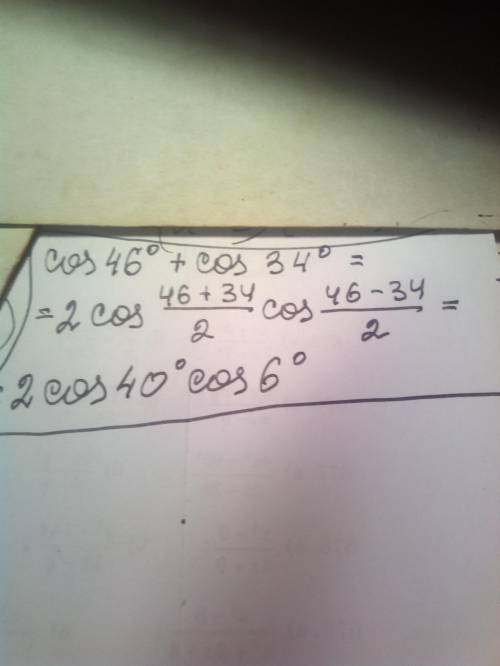 cos 46° + cos 34° =
= 2 cos \frac{46 + 34}{2} cos \frac{46 - 34}{2} =
2 cos 40° cos 6°